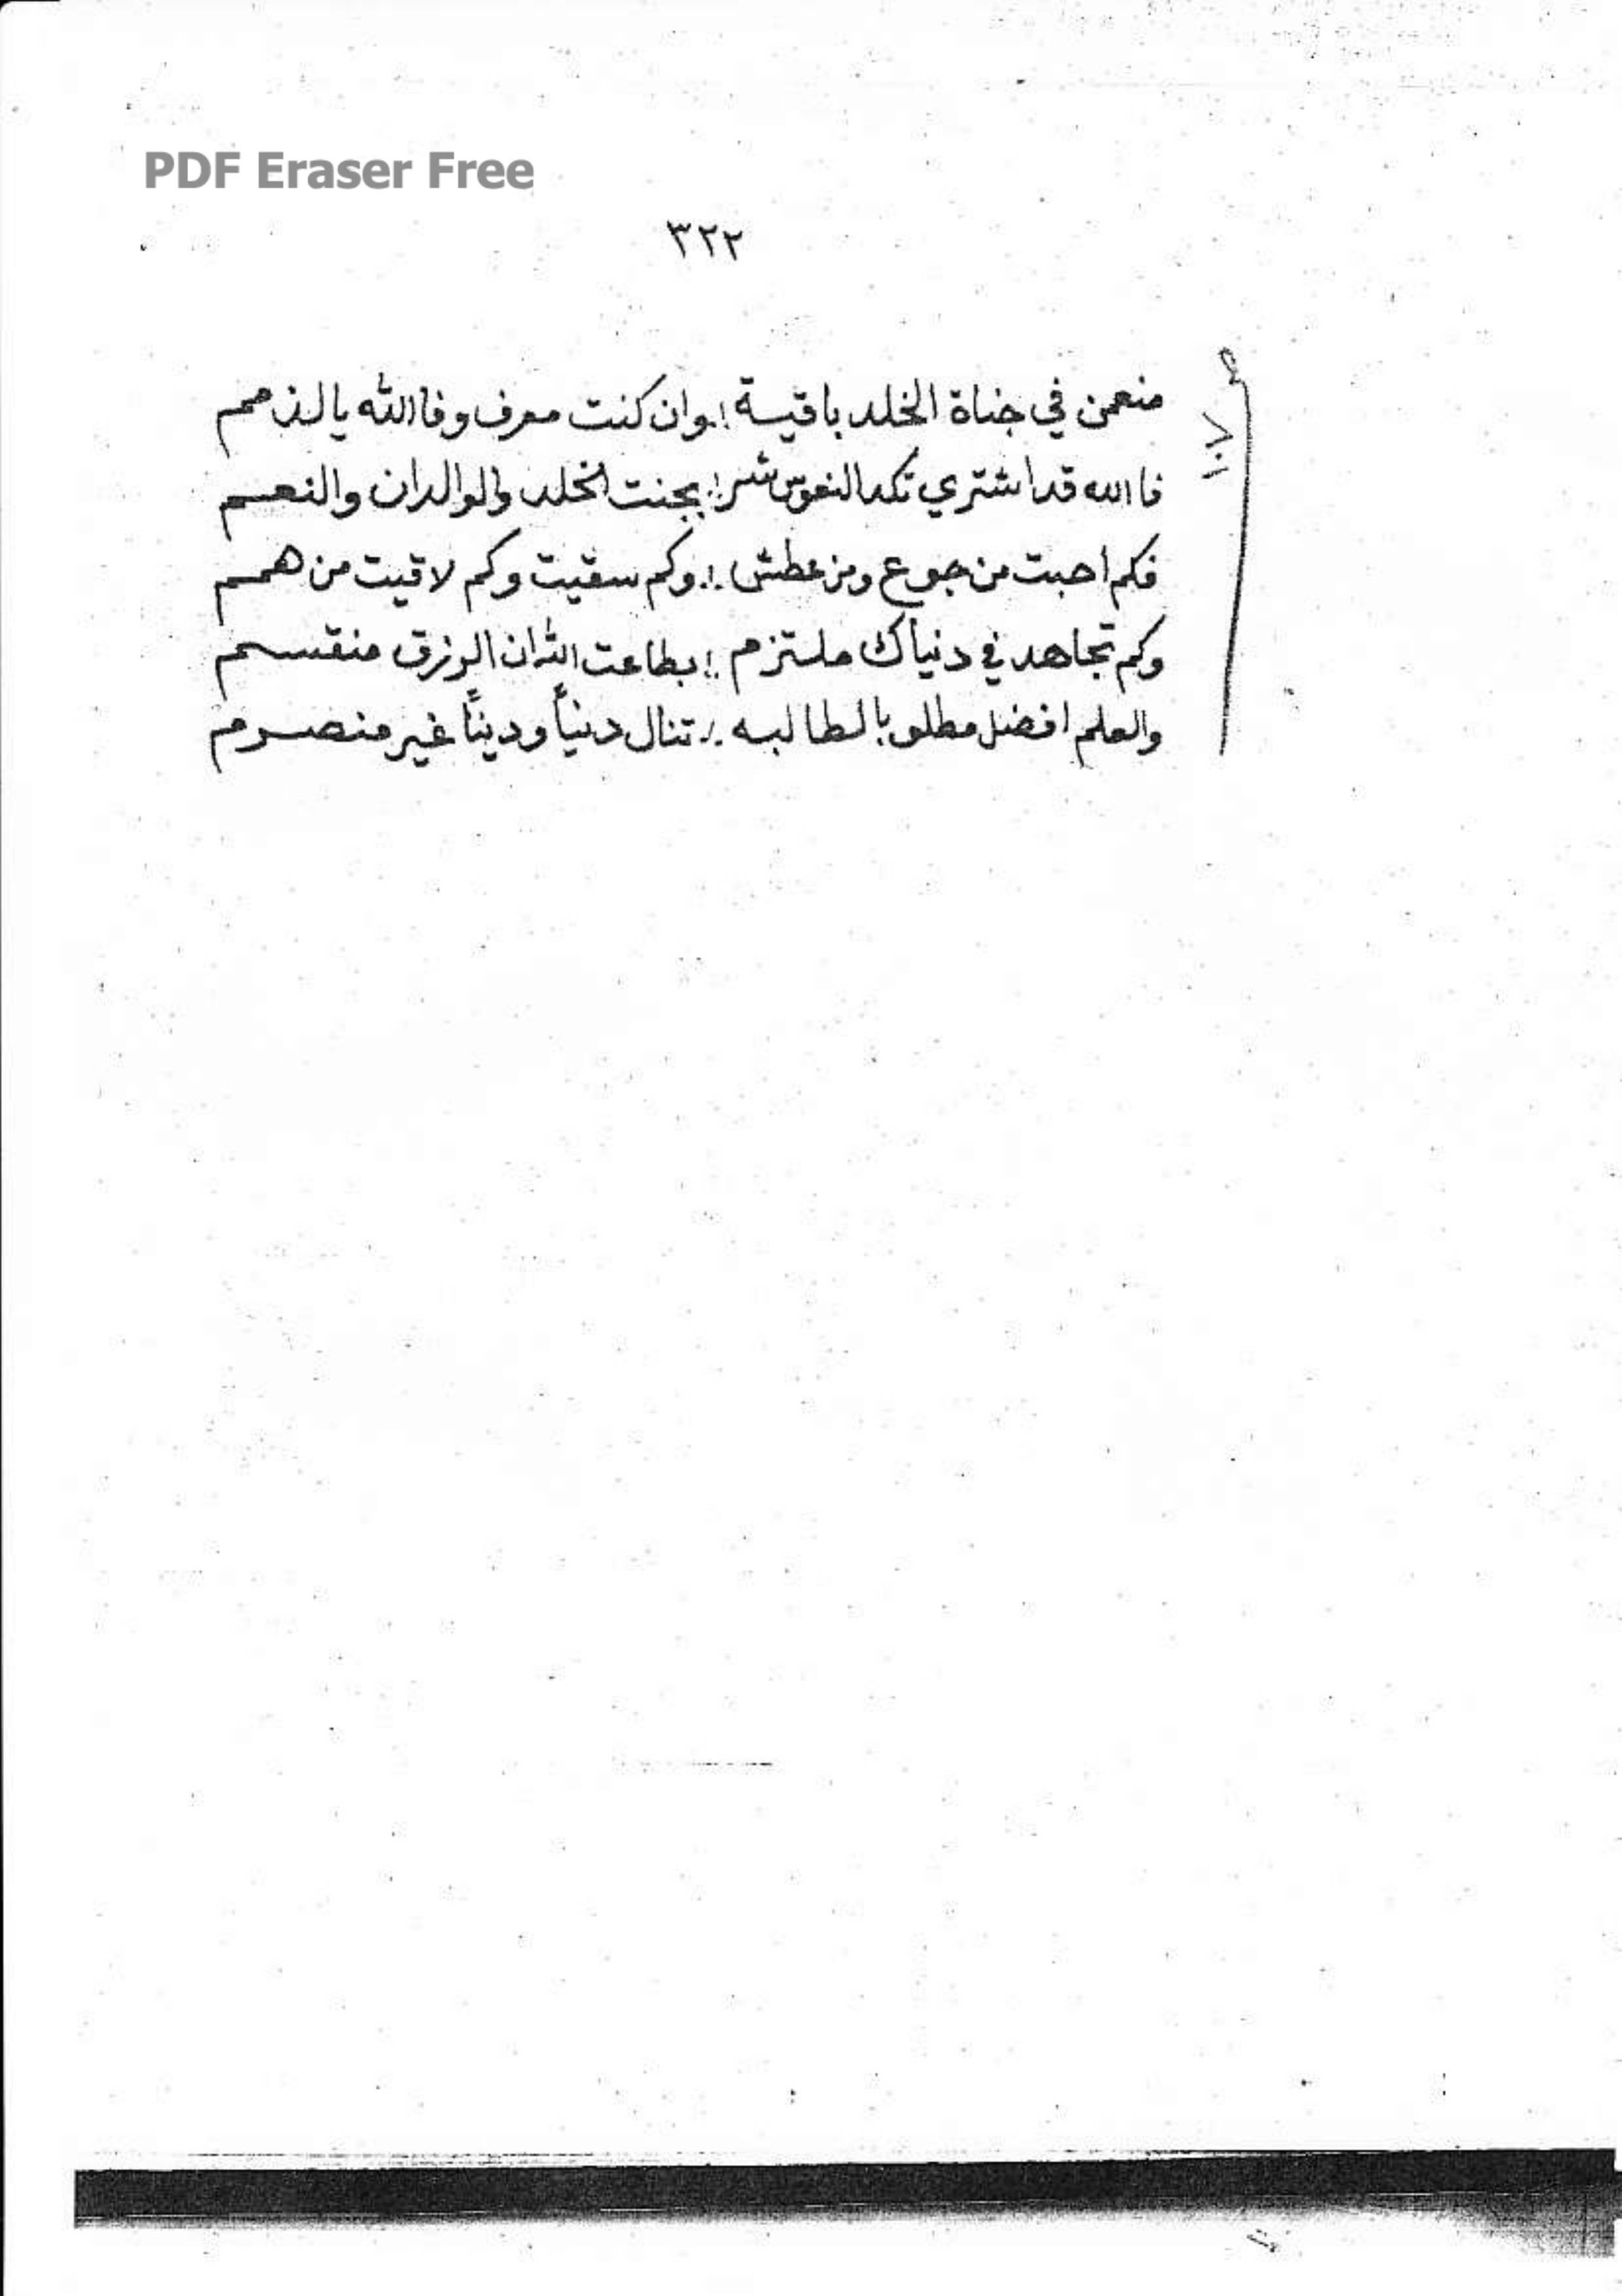 PDF Eraser Free
٣٢٢
منعمن في جناة الخلد باقية .. وان كنت معرف وفا الله يا لذمم
فا الله قد اشتري تكد النفوس شرا .. بجنت الخلد والوالدان والنعم
فكم احبت من جوع ومن عطش .. وكم سقيت وكم لاقيت من همم
وكم تجاهد في دنياك ملتزم .. بطاعت الله ان الرزق منقسم
والعلم افضل مطلوبا لطالبه .. تنال دنياً وديناً غير منصرم